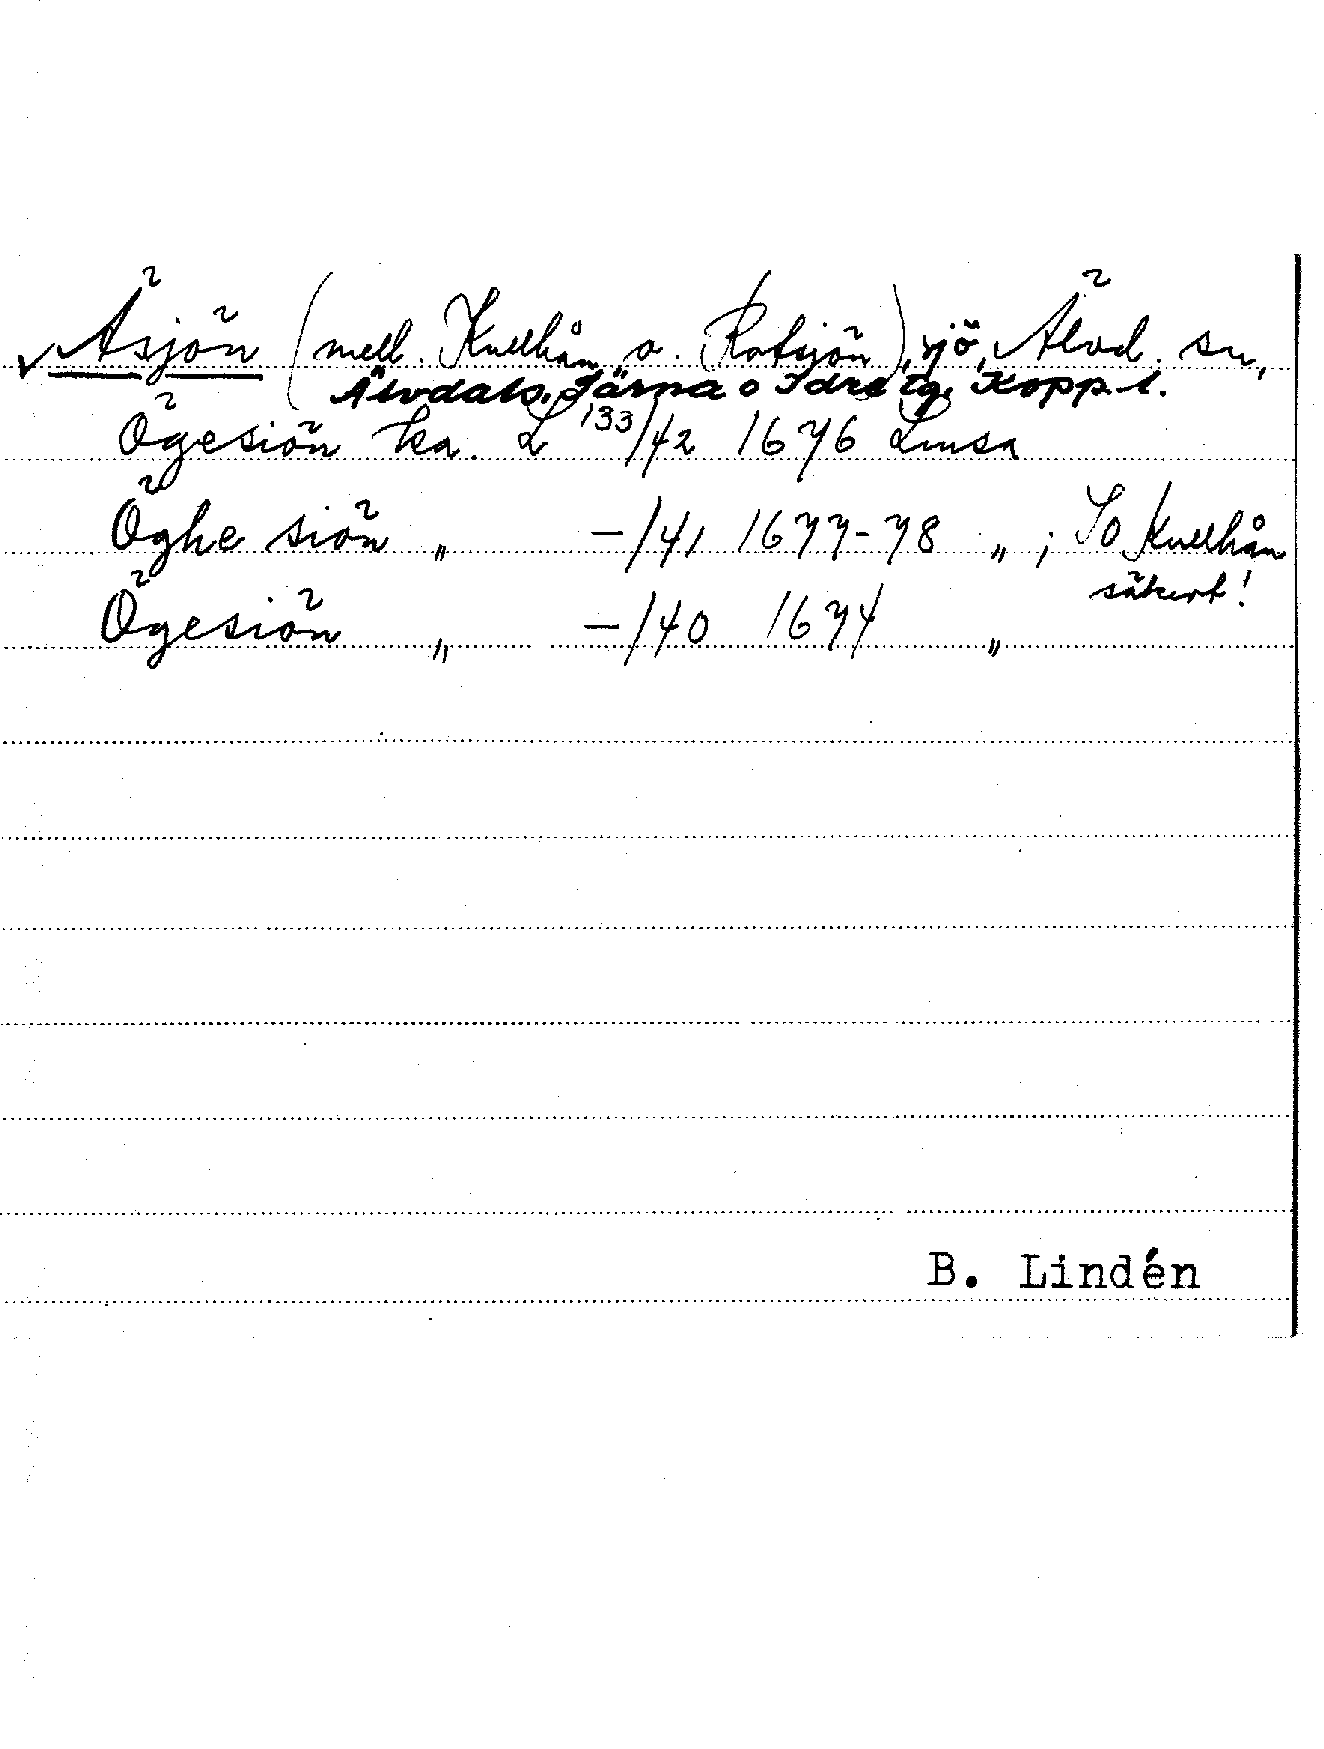 Åsjön (mell. Knellhån o. Rotsjön), sjö, Älvd. sn,
Älvdals, Särna o Idre tg. Kopp. l.
Ögesiön ka. L 133/42 1676 Lmsa
Öghe siön " -/41 1677-78 " ; SO Knellhån
säkert!
Ögesiön " -/40 1674 "
B. Lindén